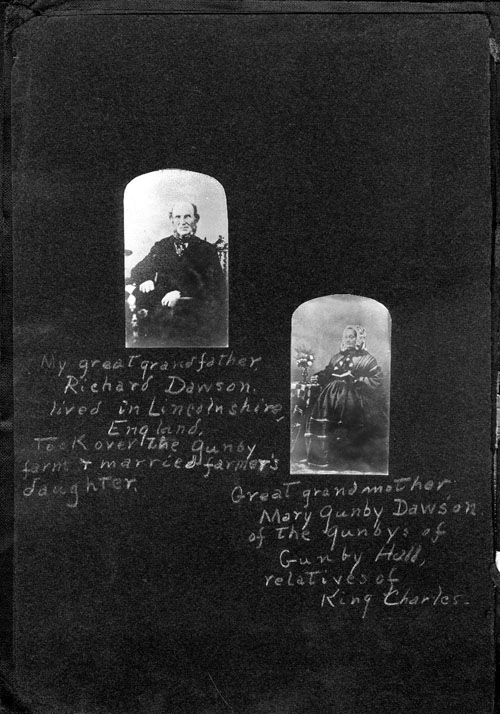 My great grandfather,
Richard Dawson.
lived in Lincolnshire,
England.
Took over the Gunby
farm + married farmer's
daughter.
Great grandmother,
Mary Gunby Dawson
of the Gunbys of
Gunby Hall,
relatives of
King Charles.